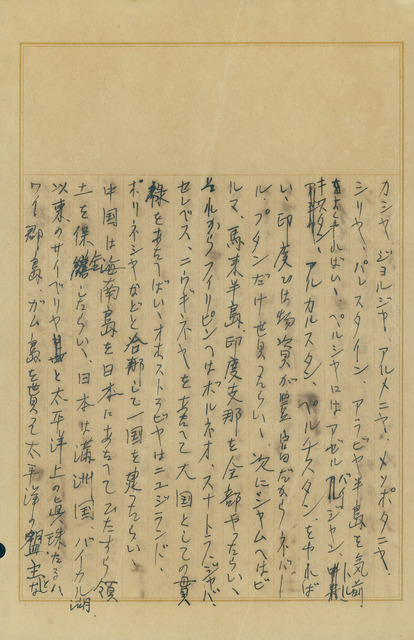 カシヤ、ジョルジヤ、アルメニヤ、メソポタニヤ、
シリヤ、パレスタイン、アラビヤ半島を気前
よくやればいゝ、ペルシヤにはアゼルバイジャン、トル
キスタン、アルカルスタン、ベルチスタンをやれば
いゝ、印度は物資が豊富だからネパー
ル、ブタンだけ貰つたらいゝ、次にシャムへはビ
ルマ、馬来半島、印度支那を全部やつたらいゝ、
それからフイリピンへはボルネオ、スマトラ、ジャバ、
セレベス、ニウギネヤを与へて大国としての貫
禄をあたへればいゝ、オオストラビヤはニュジランド、
ポリネシヤなどと合邦して一国を建つたらいゝ、
中国は海南島を日本にあたへてひたすら領
土を保全したらいゝ、日本は満洲国、バイカル湖
以東のサイベリヤと太平洋上の真珠たるハ
ワイ群島、ガム島を貰つて太平洋の盟主と